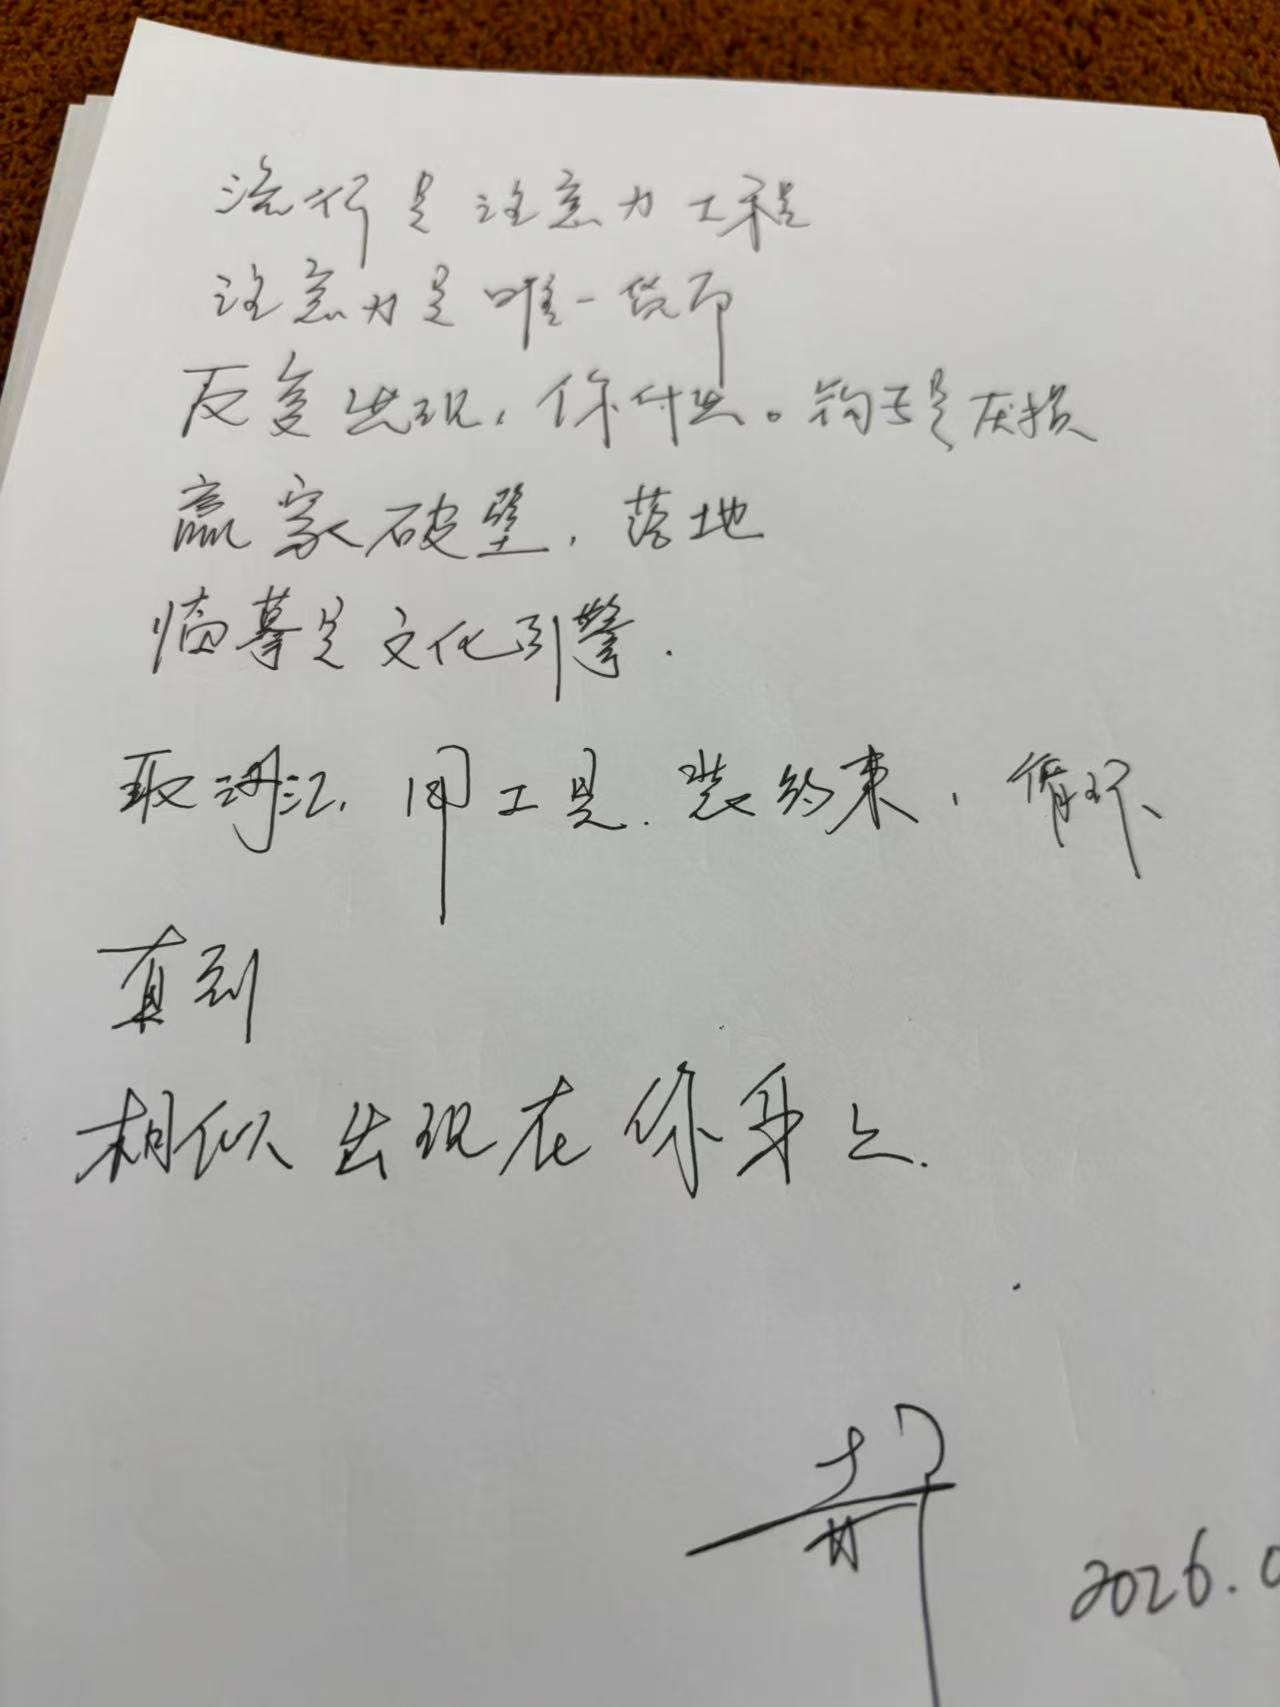 流行是注意力工程
注意力是唯一货币
反复出现，你付出。钩子是厌损
赢家破壁，落地
临摹是文化引擎.
取词汇，用工具.装约束，循环
直到
相似出现在你身上.
2026.0